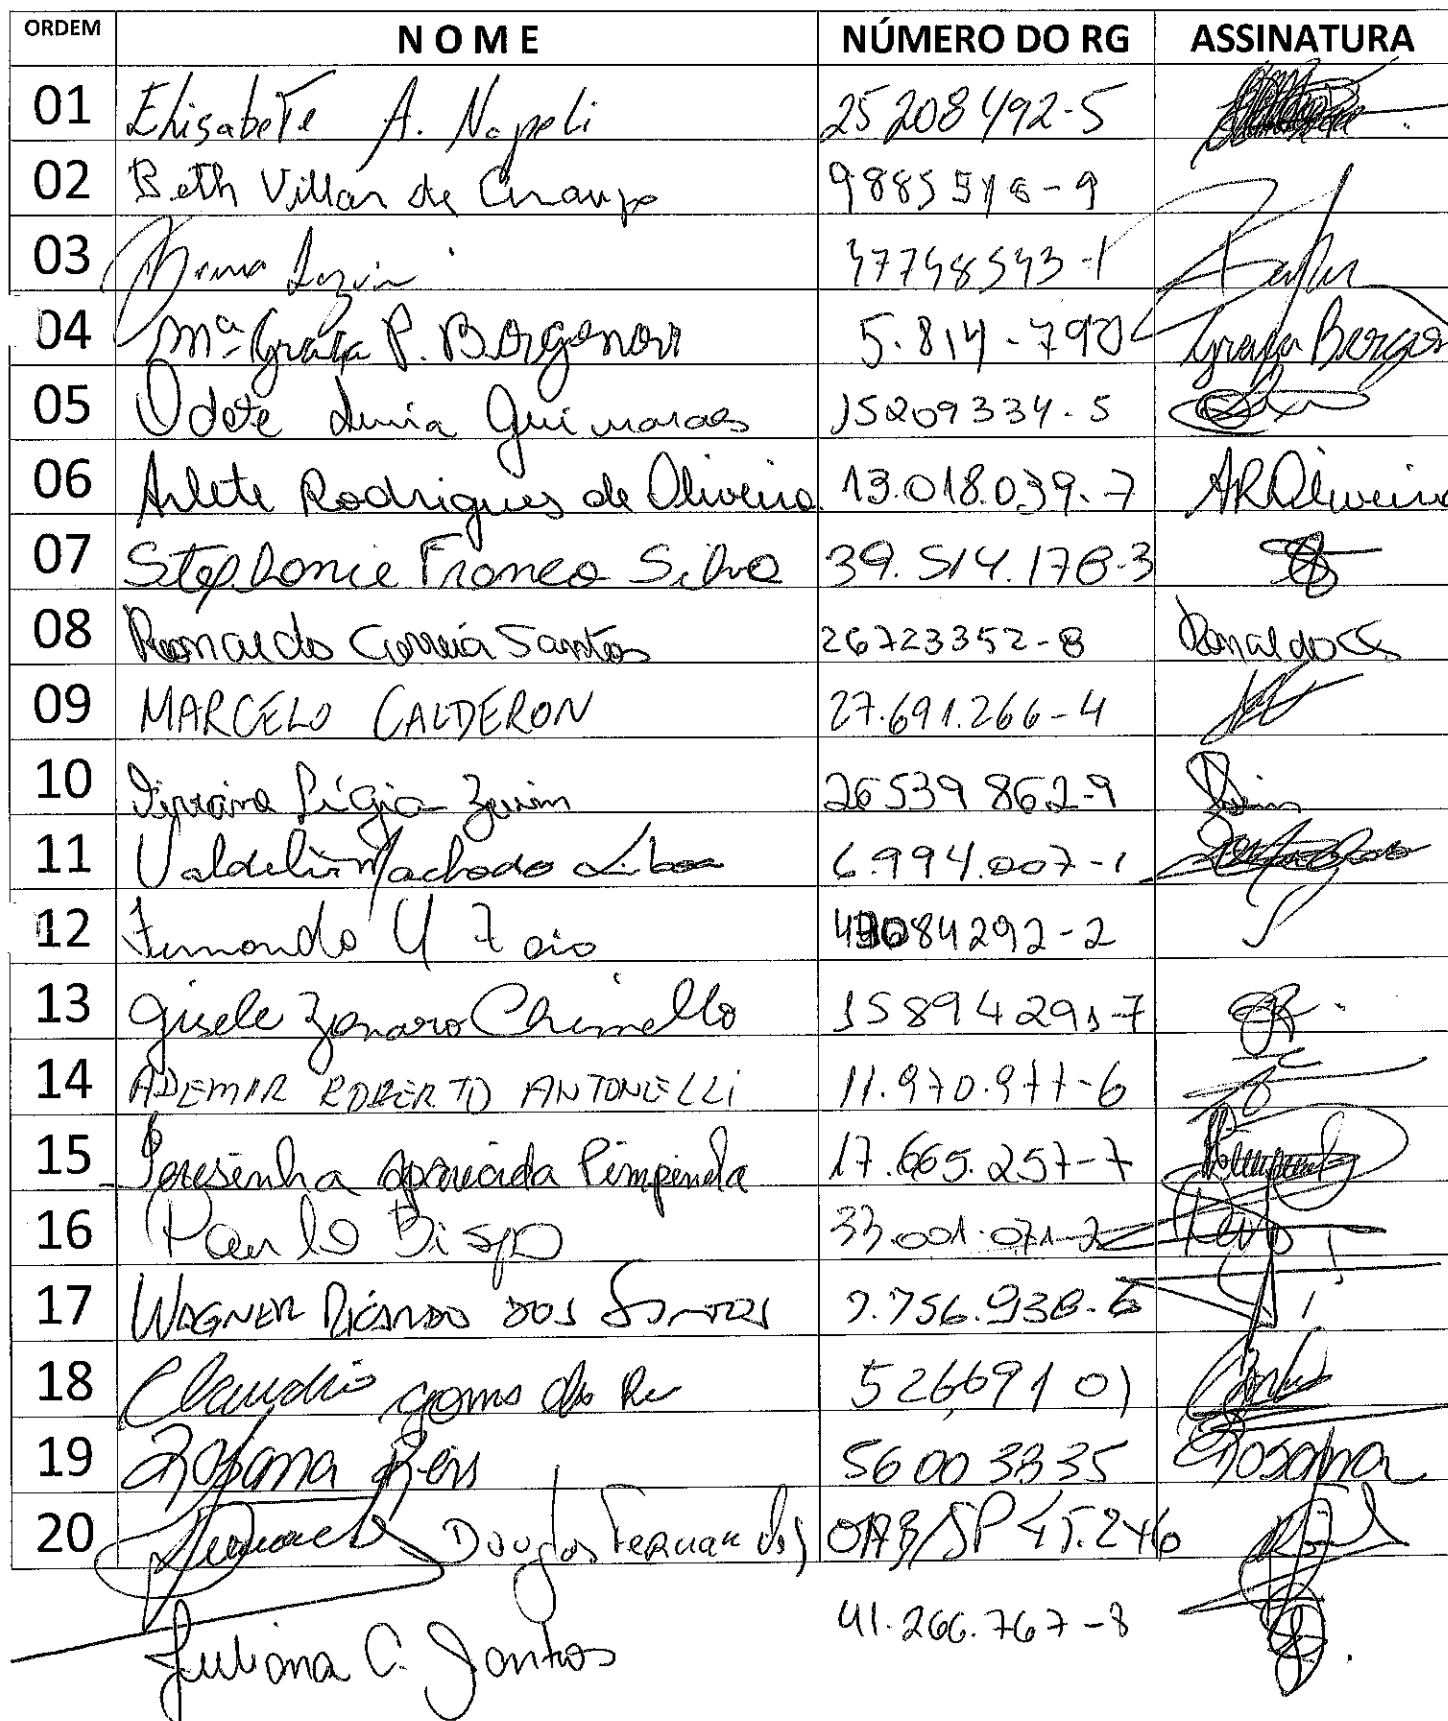 ORDEM NOME NÚMERO DO RG ASSINATURA
01 Elisabete A. Napoli 25208492-5
02 Beth Villar de Araujo 9885516-9
03 47748543-1
04 Mª Graça P. Borgonovi 5.814.790 Graça Borgo
05 Odete Luzia Guimaraes 15209334-5
06 Arlete Rodrigues de Oliveira 13.018.039-7 AROliveira
07 Stephanie Franco Silva 39.514.178-3
08 Ronaldo Correia Santos 26723352-8 Ronaldo CS
09 MARCELO CALDERON 27.691.266-4
10 Lígia Zuim 26539862-9
11 Machado 6.994.007-1
12 Fernando 084292-2
13 Gisele Zanaro Chimello 15894291-7
14 ADEMIR ROBERTO ANTONELLI 11.970.977-6
15 Teresinha Aparecida Pimpinela 17.665.257-7
16 Paulo Bispo 33.001.071-2
17 WAGNER RICARDO DOS SANTOS 7.756.938-6
18 Claudio gomes do 52669101
19 Rosana Reis 56003335 Rosana
20 Douglas Fernandes OAB/SP 45.246
Juliana C. Santos 41.266.767-8